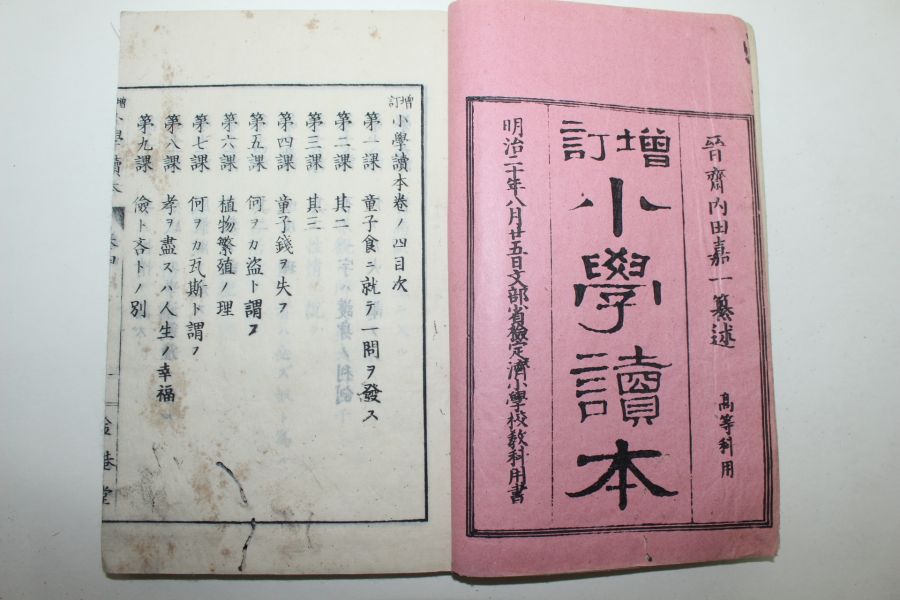 晉齋內田嘉一纂述
高等科用
增訂
小學讀本
明治二十年八月廿五日文部省檢定濟小學校教科用書
增訂小學讀本卷ノ四目次
第一課 童子食ニ就テ一問ヲ發ス
第二課 其二
第三課 其三
第四課 童子錢ヲ失フ
第五課 何ヲカ盜ト謂フ
第六課 植物繁殖ノ理
第七課 何ヲカ瓦斯ト謂フ
第八課 孝ヲ盡スハ人生ノ幸福
第九課 儉ト吝トノ別
增訂小學讀本
卷四
一